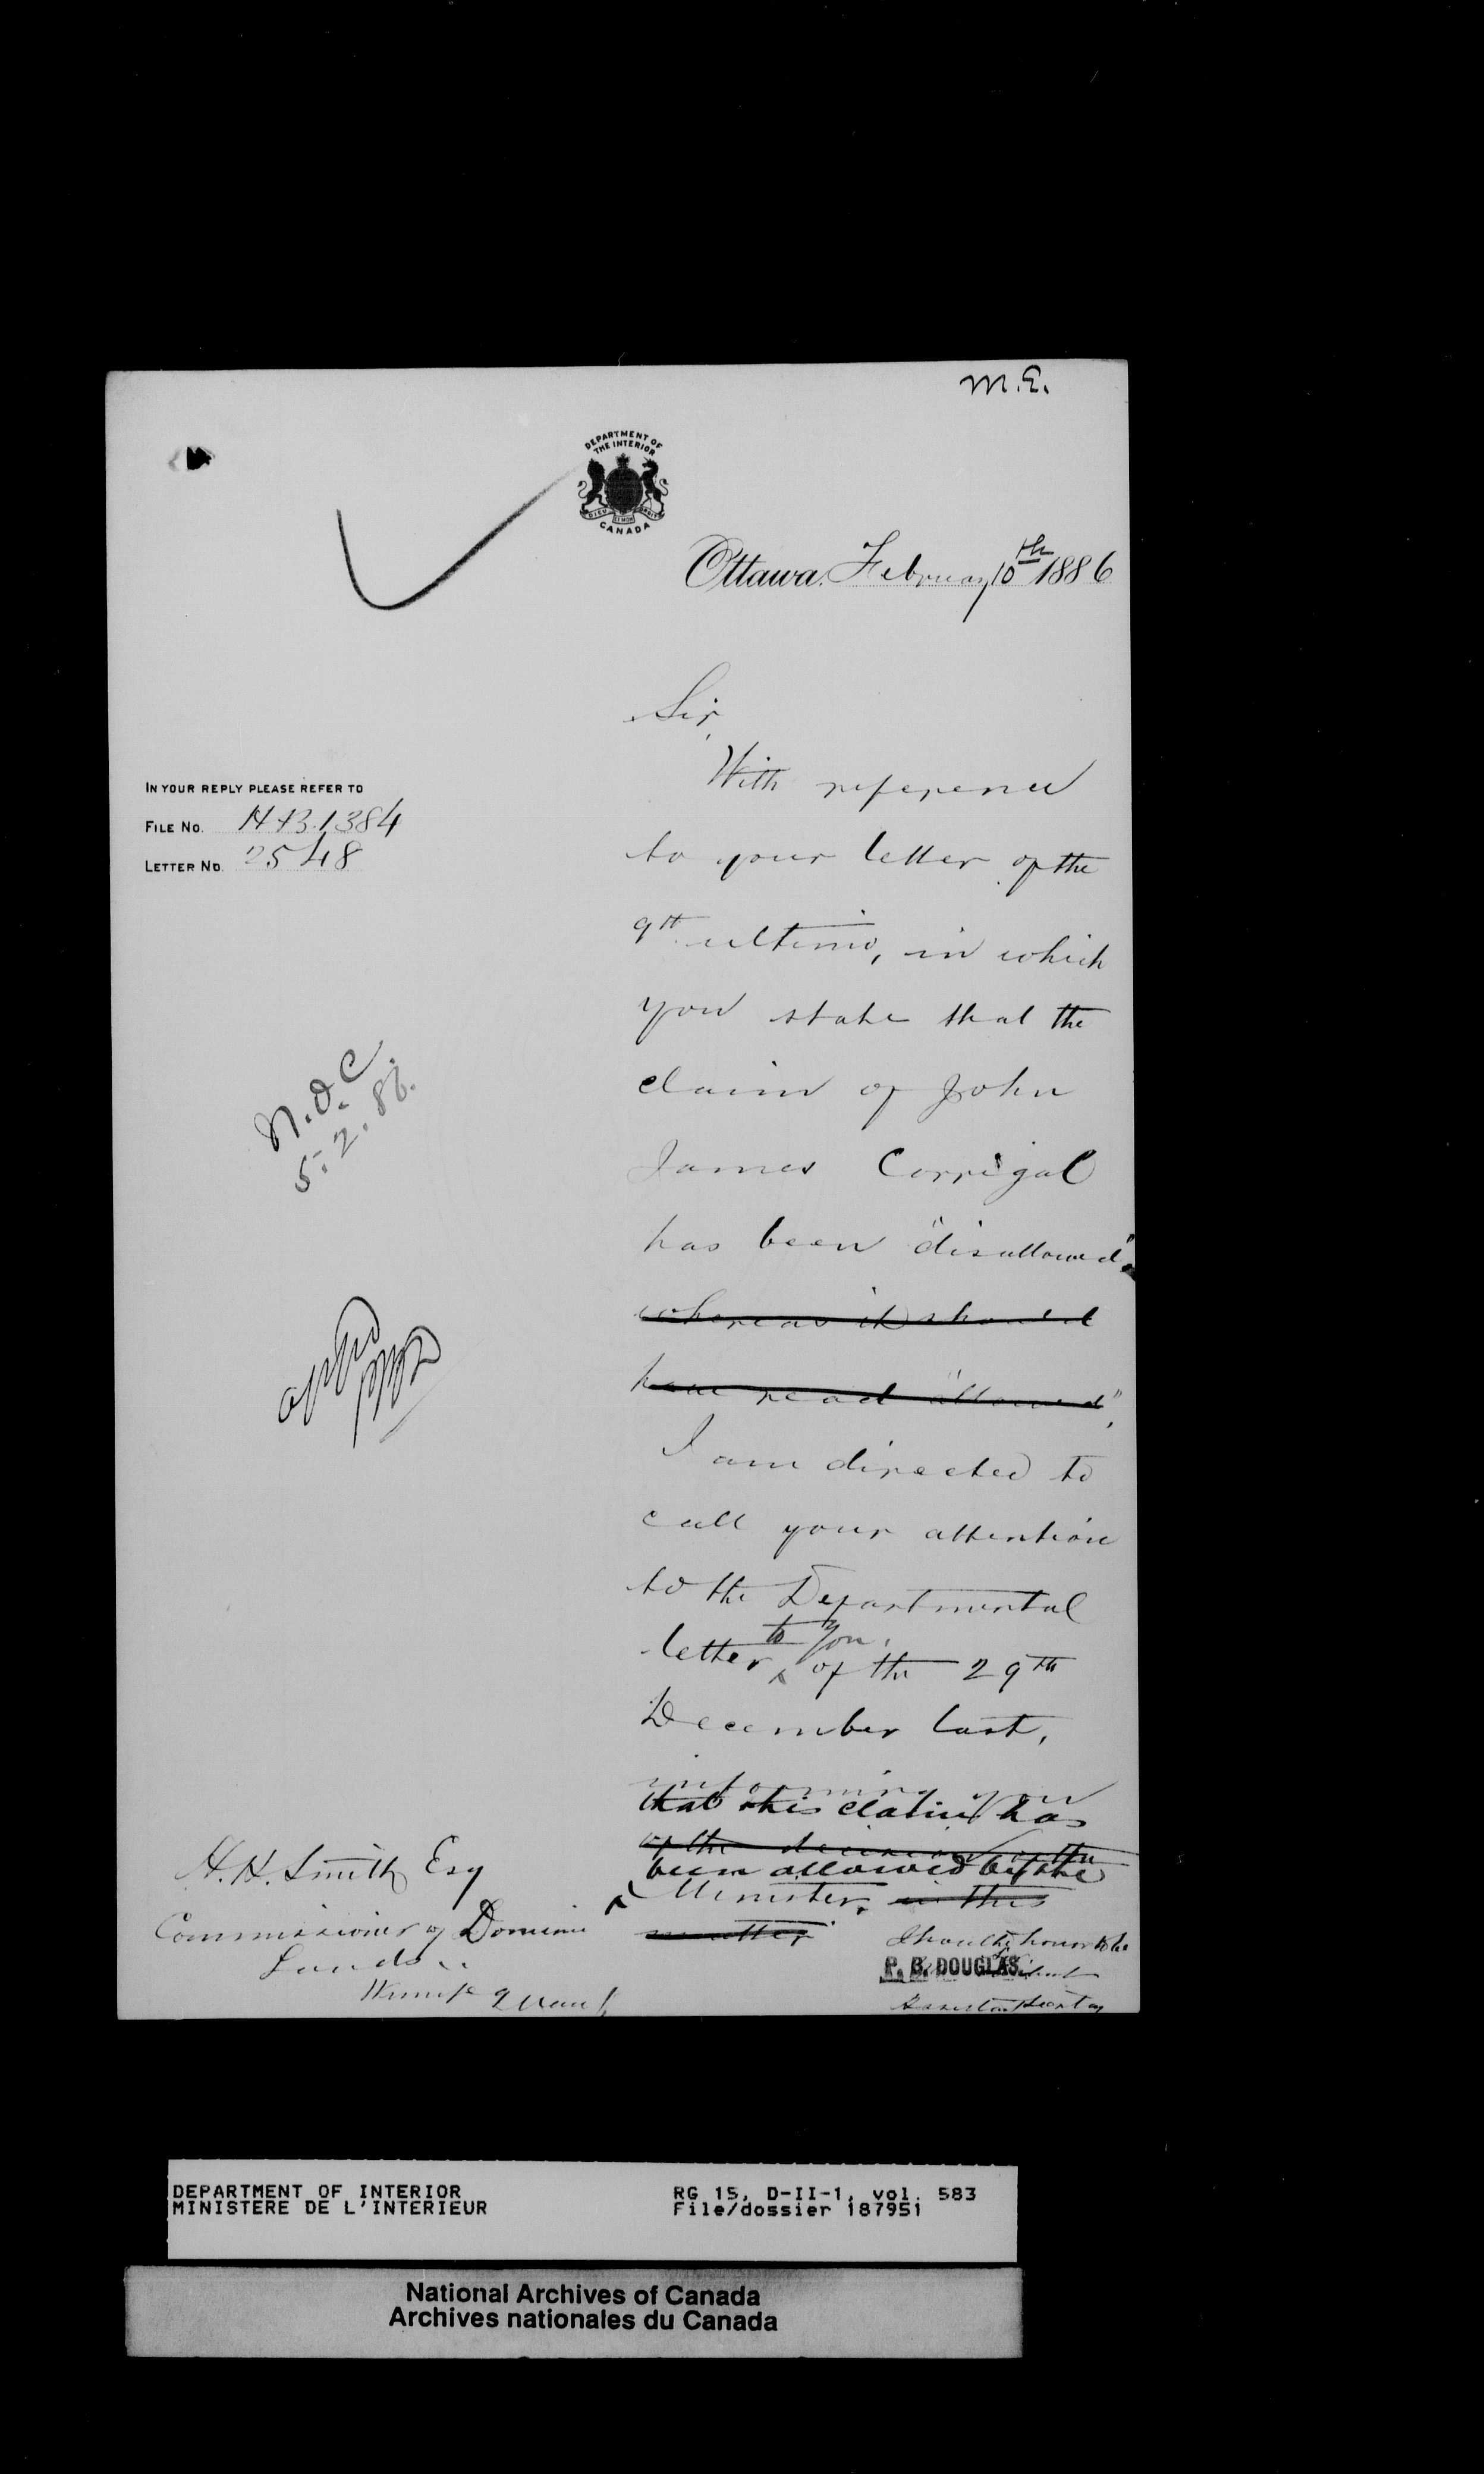 M.E.
DEPARTMENT OF
THE INTERIOR
CANADA
Ottawa. February 10th 1886
Sir,
With reference
IN YOUR REPLY PLEASE REFER TO
FILE No. HB.1384
LETTER No. 2548
to your letter of the
9th ultimo, in which
you state that the
claim of John
James Corrigal
has been "disallowed"
whereas it should
have read "allowed",
I am directed to
call your attention
to the Departmental
letter to you, of the 29th
December last,
informing you
that this claim has
of the decision of the
been allowed by the
Minister. in this
matter
N.O.C.
5.2.86.
H.H. Smith Esq
Commissioner of Dominion
Lands
I have the honor to be
P. B. DOUGLAS.
Assistant Secretary
DEPARTMENT OF INTERIOR
MINISTERE DE L'INTERIEUR
RG 15, D-II-1, vol. 583
File/dossier 187951
National Archives of Canada
Archives nationales du Canada